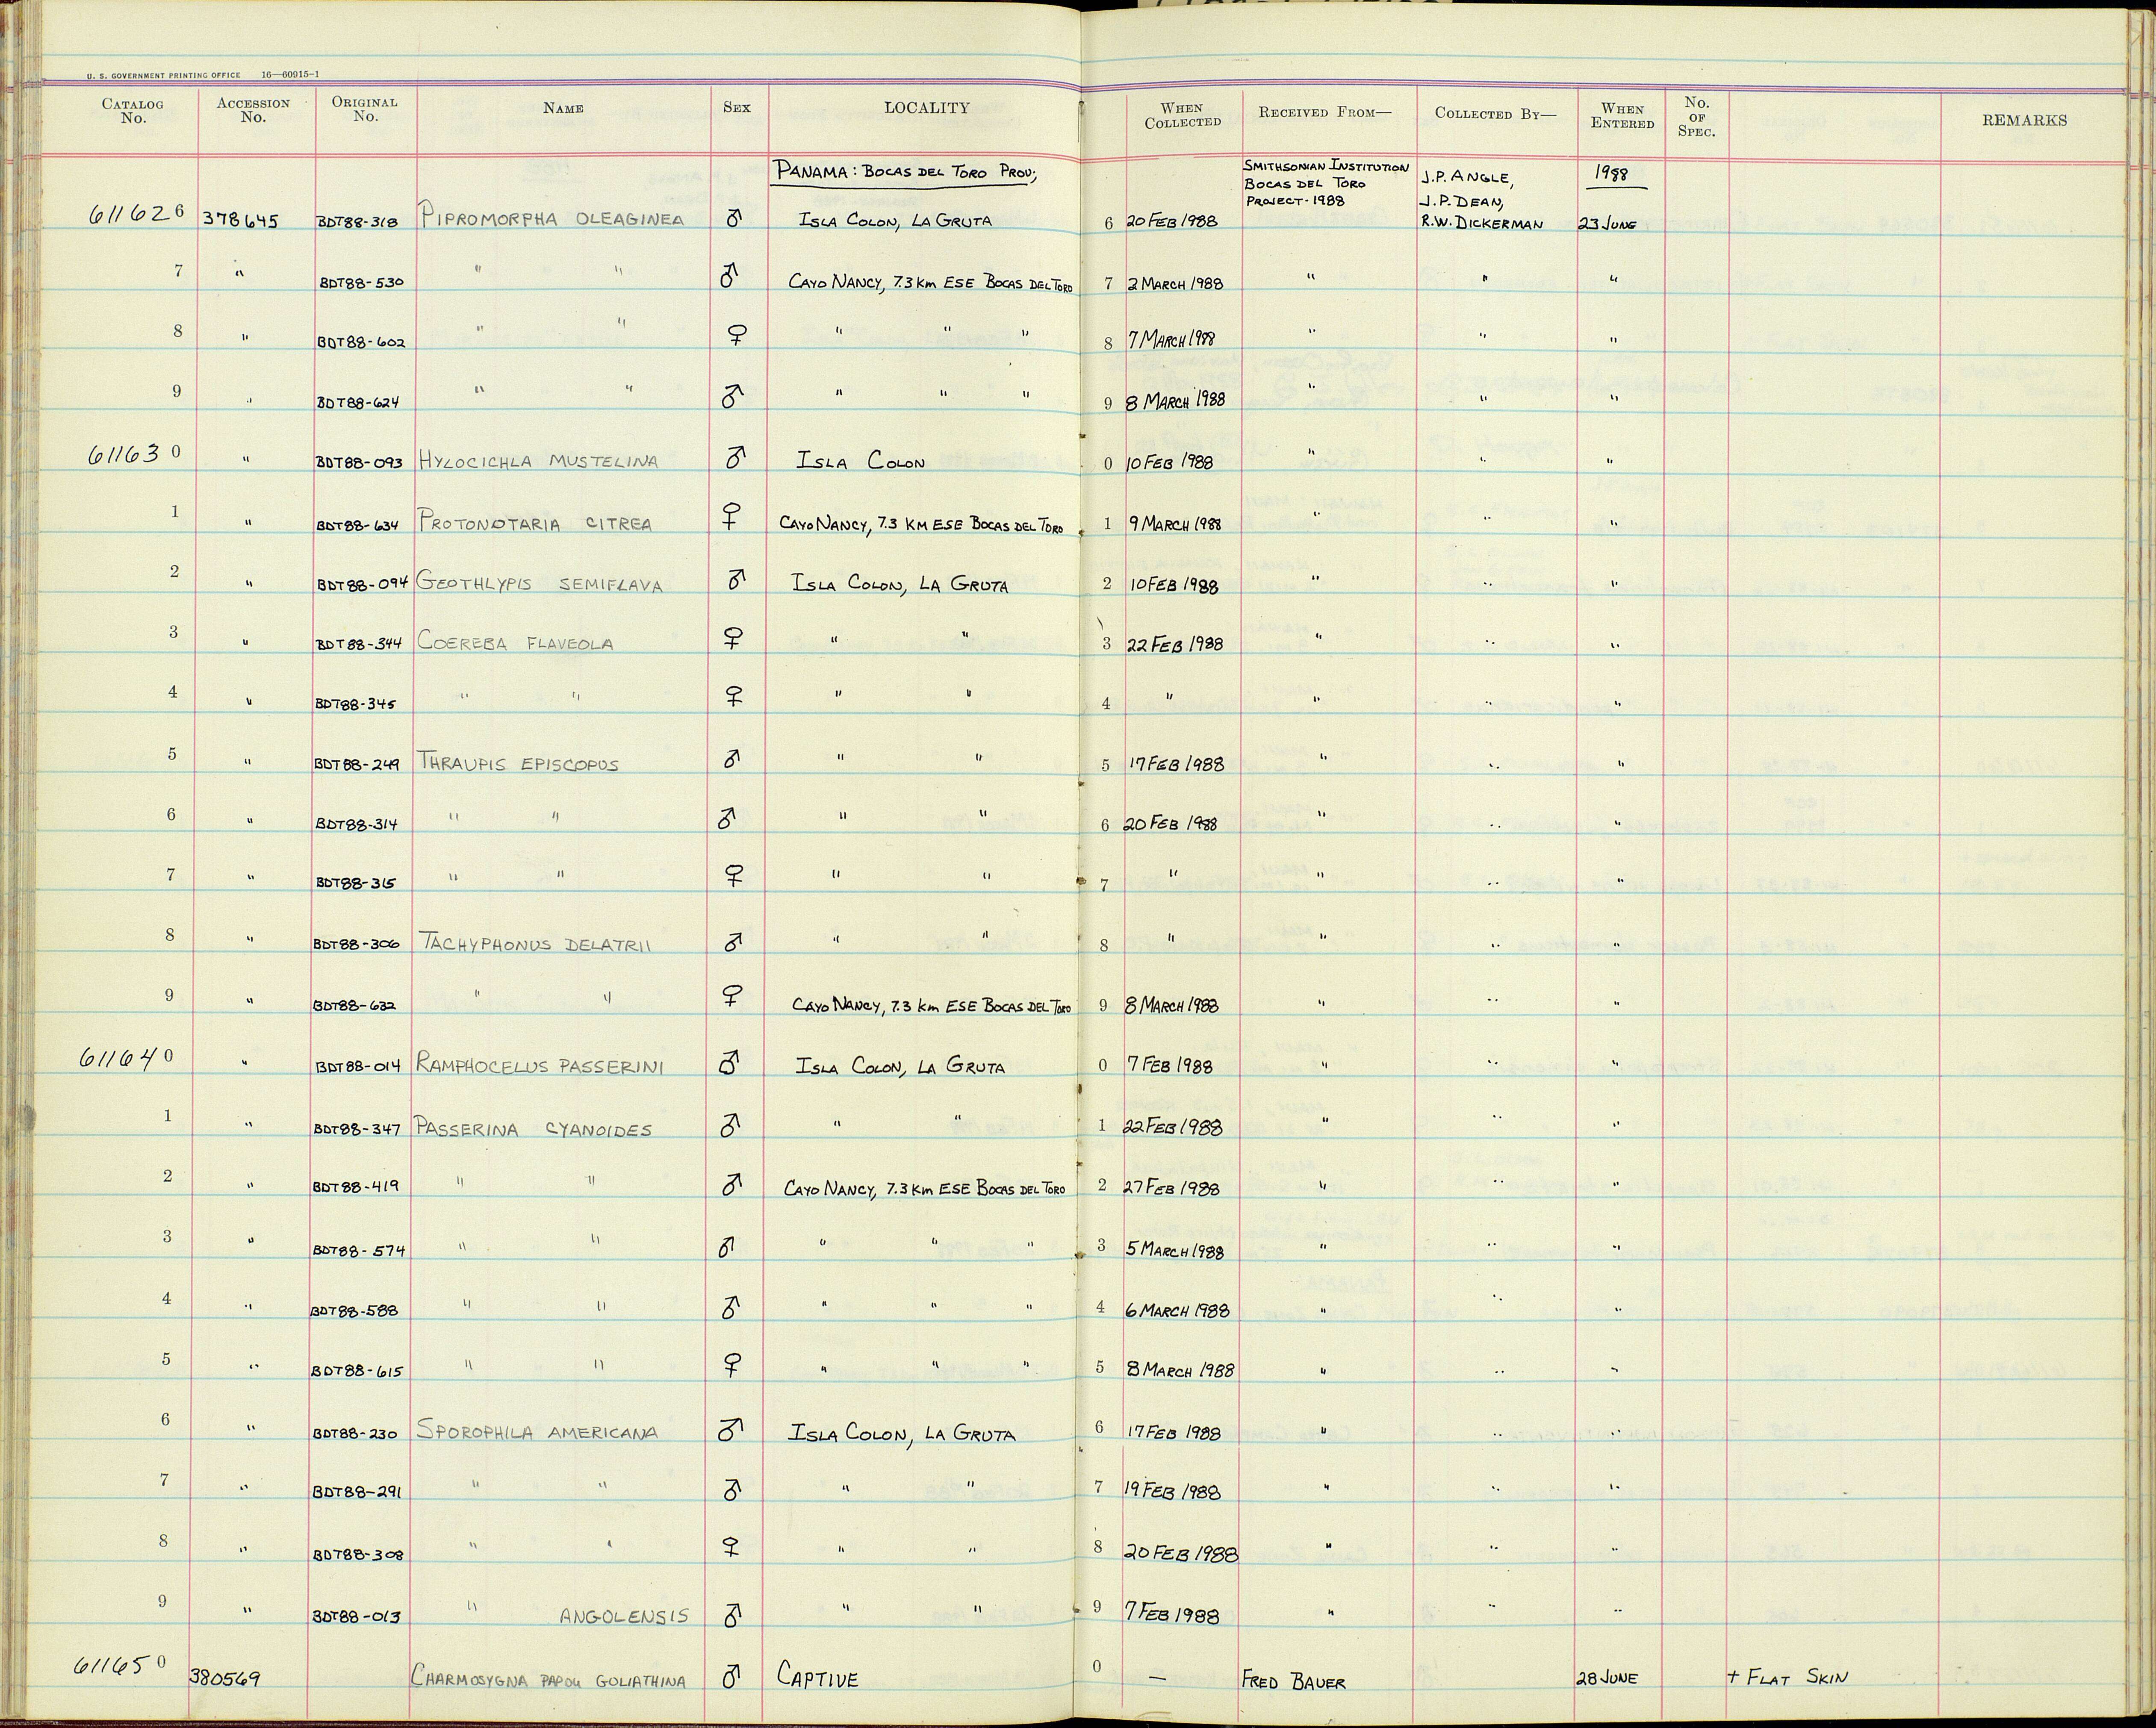 U. S. GOVERNMENT PRINTING OFFICE 16—60915-1
CATALOG No. ACCESSION No. ORIGINAL No. NAME SEX LOCALITY WHEN COLLECTED RECEIVED FROM— COLLECTED BY— WHEN ENTERED No. OF SPEC. REMARKS
PANAMA: BOCAS DEL TORO PROV; SMITHSONIAN INSTITUTION BOCAS DEL TORO PROJECT-1988 J.P. ANGLE, J.P. DEAN, 1988
611626 378645 BDT88-318 PIPROMORPHA OLEAGINEA ♂ ISLA COLON, LA GRUTA 6 20 FEB 1988 R.W. DICKERMAN 23 JUNE
7 " BDT88-530 " " ♂ CAYO NANCY, 7.3 km ESE BOCAS DEL TORO 7 2 MARCH 1988 " " "
8 " BDT88-602 " " ♀ " " " 8 7 MARCH 1988 " " "
9 " BDT88-624 " " ♂ " " " 9 8 MARCH 1988 " " "
611630 " BDT88-093 HYLOCICHLA MUSTELINA ♂ ISLA COLON 0 10 FEB 1988 " " "
1 " BDT88-634 PROTONOTARIA CITREA ♀ CAYO NANCY, 7.3 KM ESE BOCAS DEL TORO 1 9 MARCH 1988 " " "
2 " BDT88-094 GEOTHLYPIS SEMIFLAVA ♂ ISLA COLON, LA GRUTA 2 10 FEB 1988 " " "
3 " BDT88-344 COEREBA FLAVEOLA ♀ " " 3 22 FEB 1988 " " "
4 " BDT88-345 " " ♀ " " 4 " " " "
5 " BDT88-249 THRAUPIS EPISCOPUS ♂ " " 5 17 FEB 1988 " " "
6 " BDT88-314 " " ♂ " " 6 20 FEB 1988 " " "
7 " BDT88-315 " " ♀ " " 7 " " " "
8 " BDT88-306 TACHYPHONUS DELATRII ♂ " " 8 " " " "
9 " BDT88-632 " " ♀ CAYO NANCY, 7.3 km ESE BOCAS DEL TORO 9 8 MARCH 1988 " " "
611640 " BDT88-014 RAMPHOCELUS PASSERINI ♂ ISLA COLON, LA GRUTA 0 7 FEB 1988 " " "
1 " BDT88-347 PASSERINA CYANOIDES ♂ " " 1 22 FEB 1988 " " "
2 " BDT88-419 " " ♂ CAYO NANCY, 7.3 Km ESE BOCAS DEL TORO 2 27 FEB 1988 " " "
3 " BDT88-574 " " ♂ " " " 3 5 MARCH 1988 " " "
4 " BDT88-588 " " ♂ " " " 4 6 MARCH 1988 " " "
5 " BDT88-615 " " ♀ " " " 5 8 MARCH 1988 " " "
6 " BDT88-230 SPOROPHILA AMERICANA ♂ ISLA COLON, LA GRUTA 6 17 FEB 1988 " " "
7 " BDT88-291 " " ♂ " " 7 19 FEB 1988 " " "
8 " BDT88-308 " " ♀ " " 8 20 FEB 1988 " " "
9 " BDT88-013 " ANGOLENSIS ♂ " " 9 7 FEB 1988 " " "
611650 380569 CHARMOSYGNA PAPOU GOLIATHINA ♂ CAPTIVE 0 — FRED BAUER 28 JUNE + FLAT SKIN